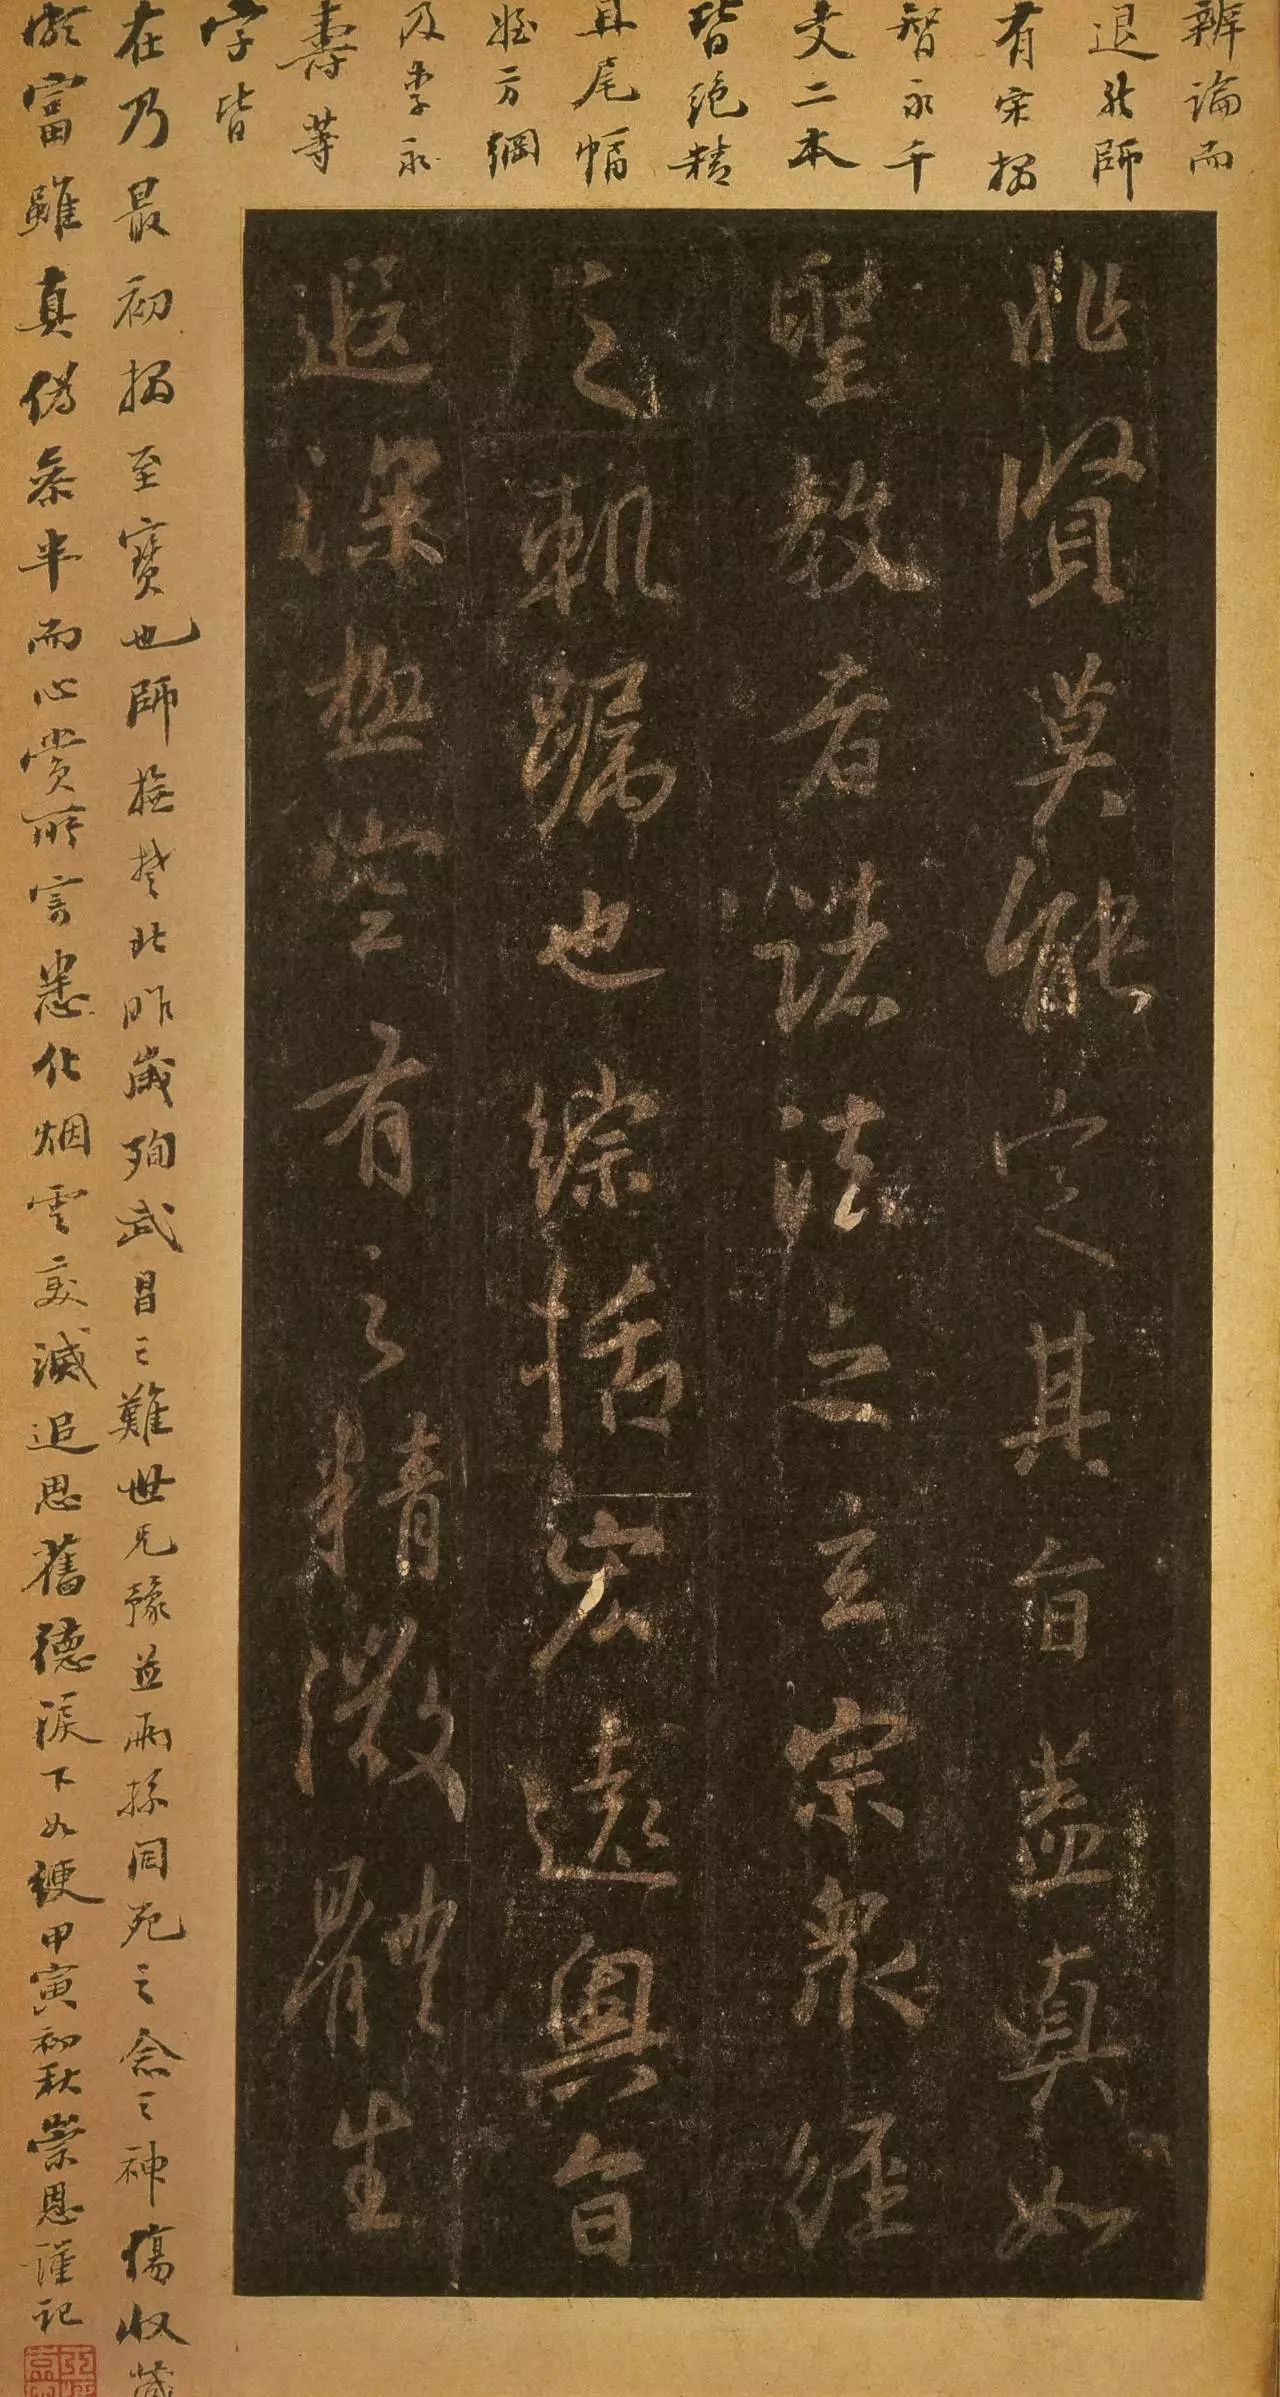 辨論而
退然師
有宋搨
智永千
文二本
皆絕精
且尾幅
方綱
及李永
壽等
字皆
在乃最初搨至寶也師撫楚北昨歲殉武昌之難世兄豫並兩孫同死之念之神傷收藏
富雖真偽參半而心賞所寄悉化烟雲變滅追思舊德淚下如綆甲寅初秋崇恩謹記
非賢莫能定其旨蓋真如
聖教者諸法之玄宗眾經
之軌躅也綜括宏遠奧旨
遐深極空有之精微體生